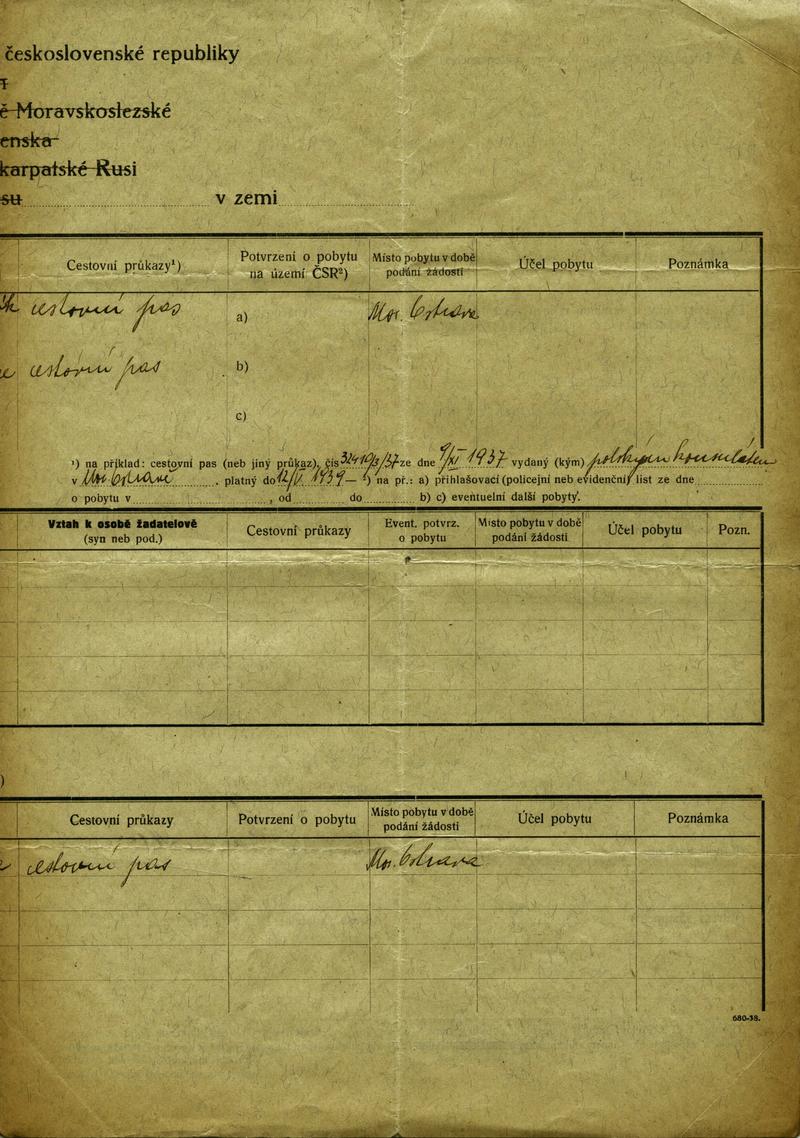 československé republiky
ě Moravskoslezské
enska
karpatské Rusi
su v zemi
Cestovní průkazy¹) Potvrzení o pobytu na území ČSR²) Místo pobytu v době podání žádosti Účel pobytu Poznámka
cestovní pas a) Mor. Ostrava
cestovní pas b)
c)
¹) na příklad: cestovní pas (neb jiný průkaz), čís ze dne 9/XI 1937 vydaný (kým) polským konsulátem
v Mor. Ostravě, platný do 1939 — ²) na př.: a) přihlašovací (policejní neb evidenční) list ze dne
o pobytu v , od do b) c) eventuelní další pobyty.
Vztah k osobě žadatelově (syn neb pod.) Cestovní průkazy Event. potvrz. o pobytu Místo pobytu v době podání žádosti Účel pobytu Pozn.
)
Cestovní průkazy Potvrzení o pobytu Místo pobytu v době podání žádosti Účel pobytu Poznámka
cestovní pas Mor. Ostrava
680-38.